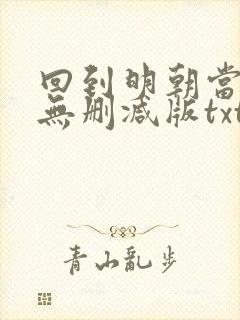 回到明朝當
無刪減版txt
青山亂步